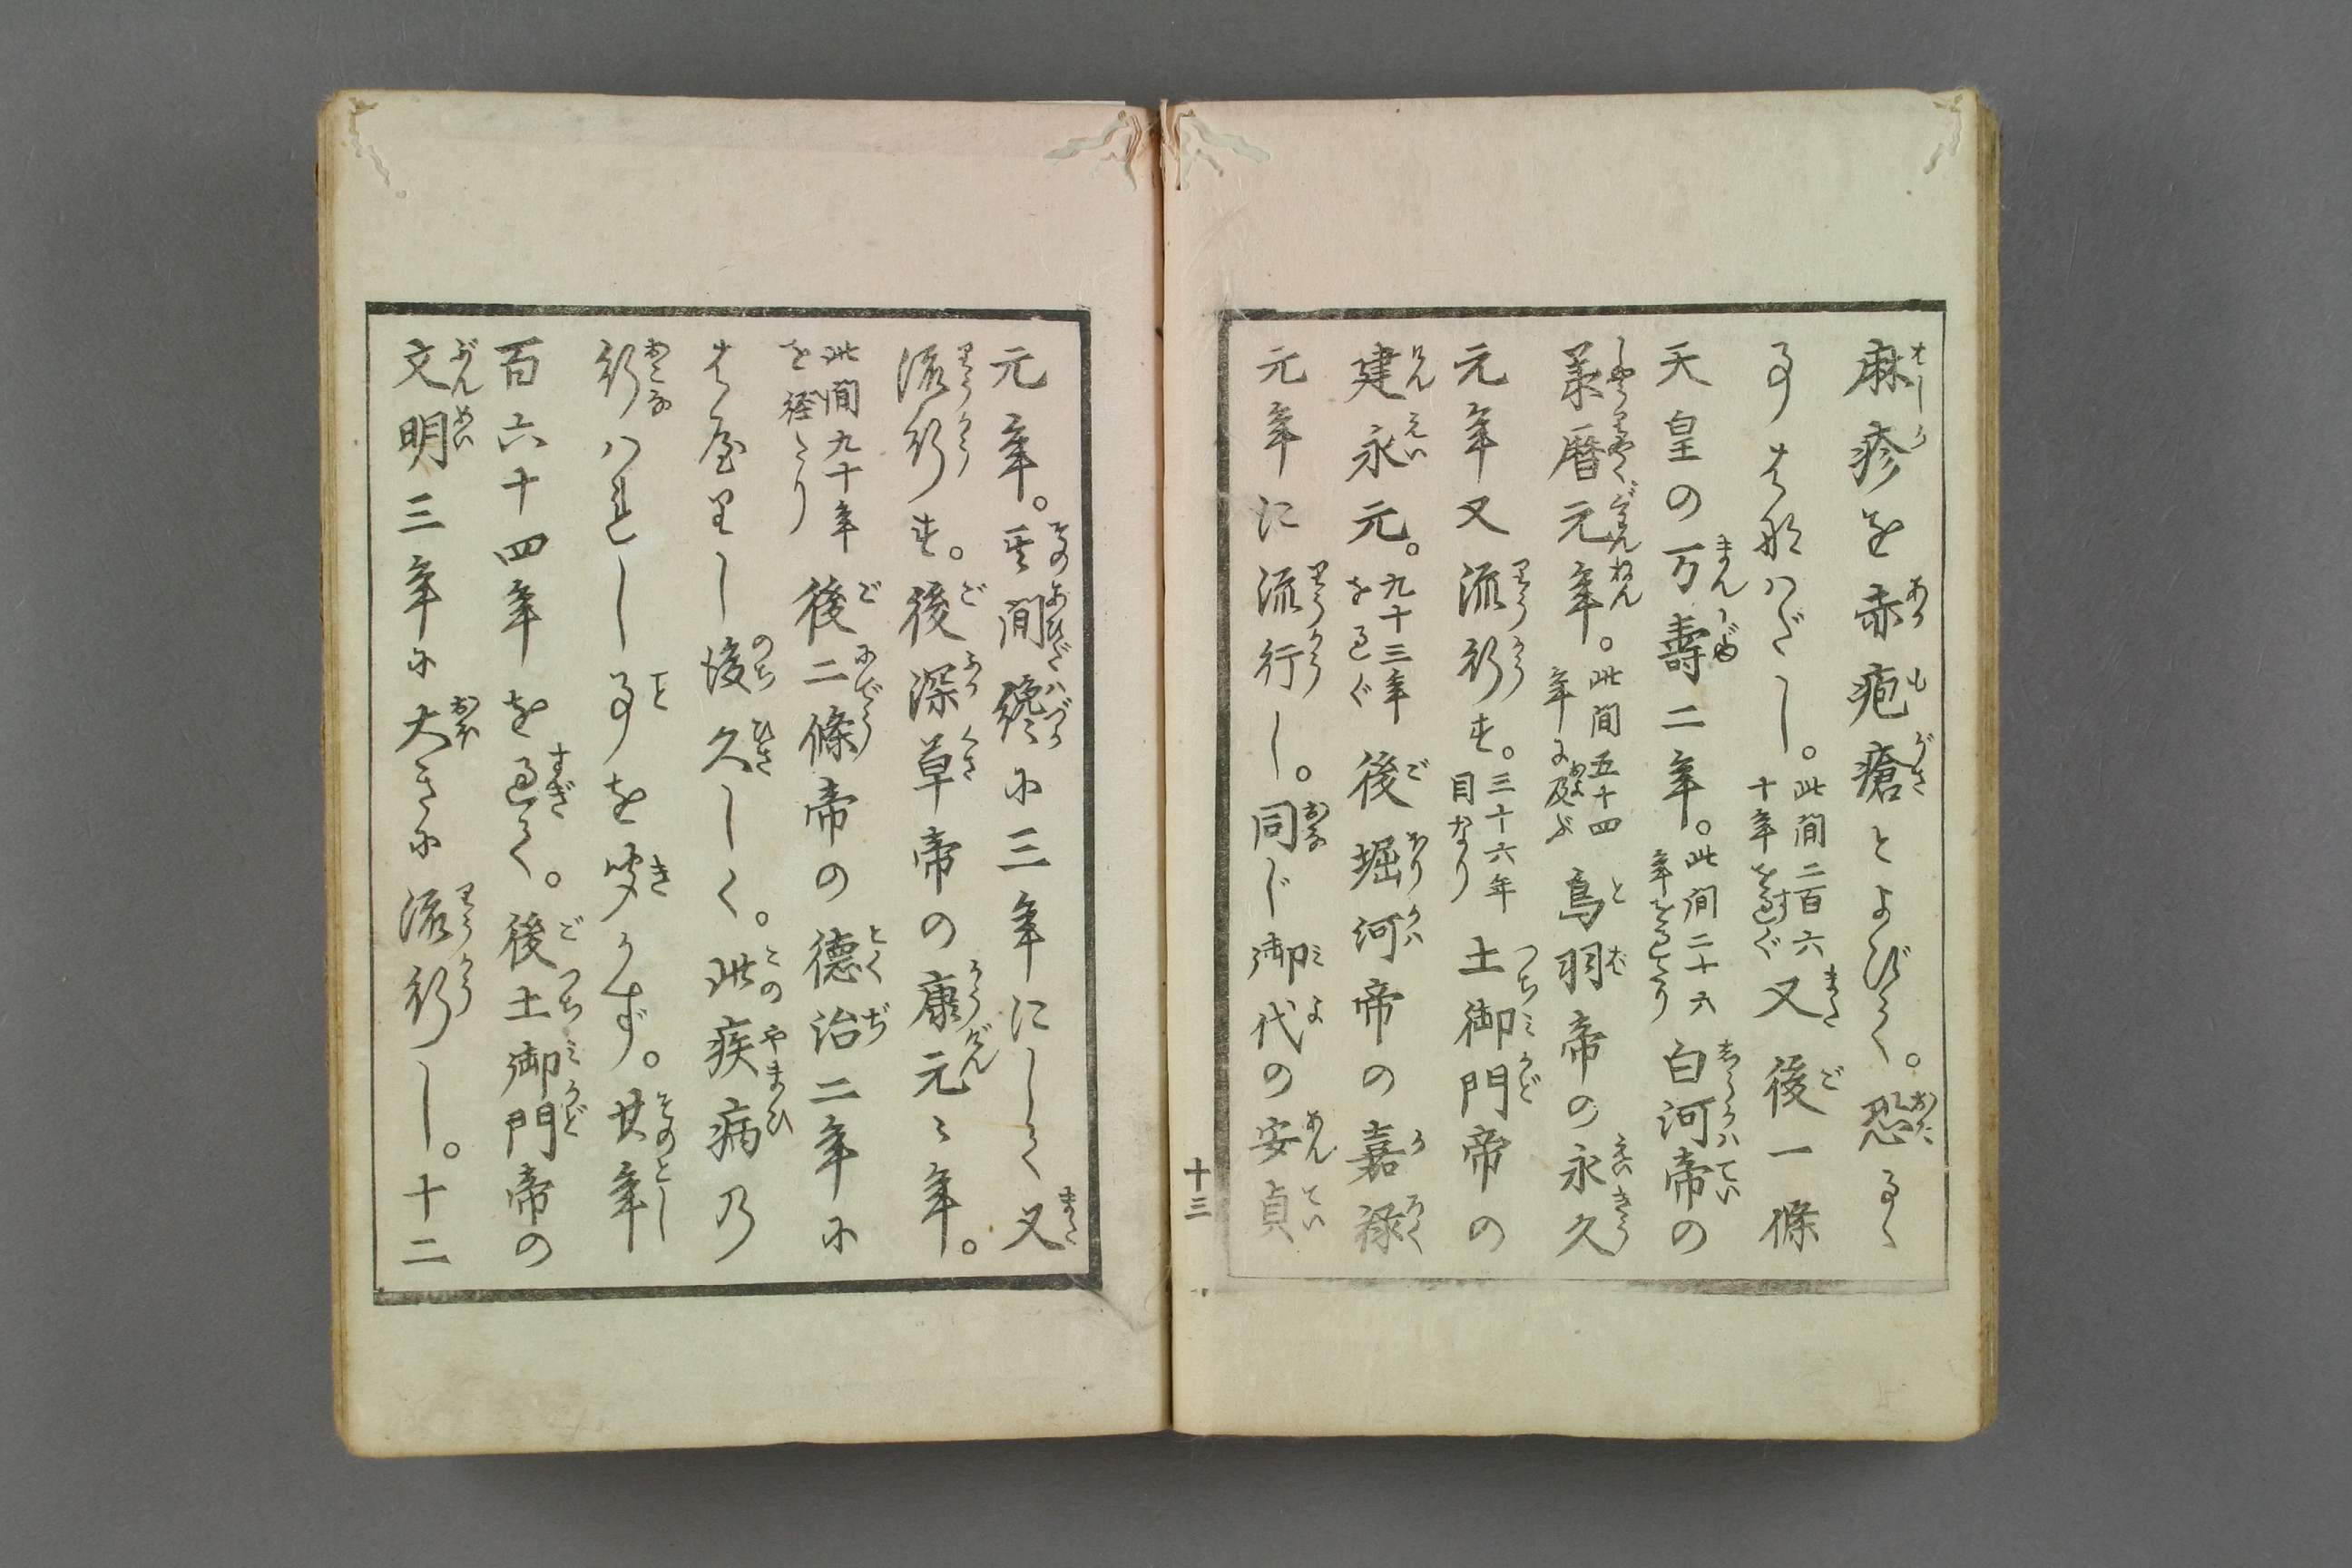 麻疹を赤疱瘡とよびて。恐るゝ
事甚だはなはだし。此間二百六十年を過ぐ又後一條
天皇の万壽二年。此間二十六年を過たり白河帝の
承暦元年。此間五十四年に及ぶ鳥羽帝の永久
元年又流行す。三十六年目なり土御門帝の
建永元。九十三年を過ぐ後堀河帝の嘉禄
元年に流行し。同じ御代の安貞
十三
元年。其間纔に三年にして又
流行す。後深草帝の康元々年。
此間九十年を経たり後二條帝の徳治二年に
はやりし後久しく。此疾病乃
行はれし事を聞かず。其年
百六十四年を過て。後土御門帝の
文明三年に大きに流行し。十二